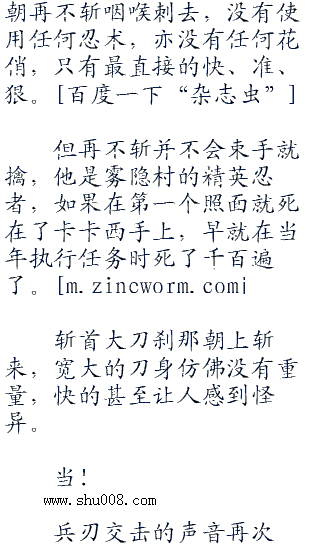 朝再不斩咽喉刺去，没有使
用任何忍术，亦没有任何花
俏，只有最直接的快、准、
狠。[百度一下“杂志虫”]
但再不斩并不会束手就
擒，他是雾隐村的精英忍
者，如果在第一个照面就死
在了卡卡西手上，早就在当
年执行任务时死了千百遍
了。[m.zincworm.com|
斩首大刀刹那朝上斩
来，宽大的刀身仿佛没有重
量，快的甚至让人感到怪
异。
当！
www.shu008.com
兵刃交击的声音再次